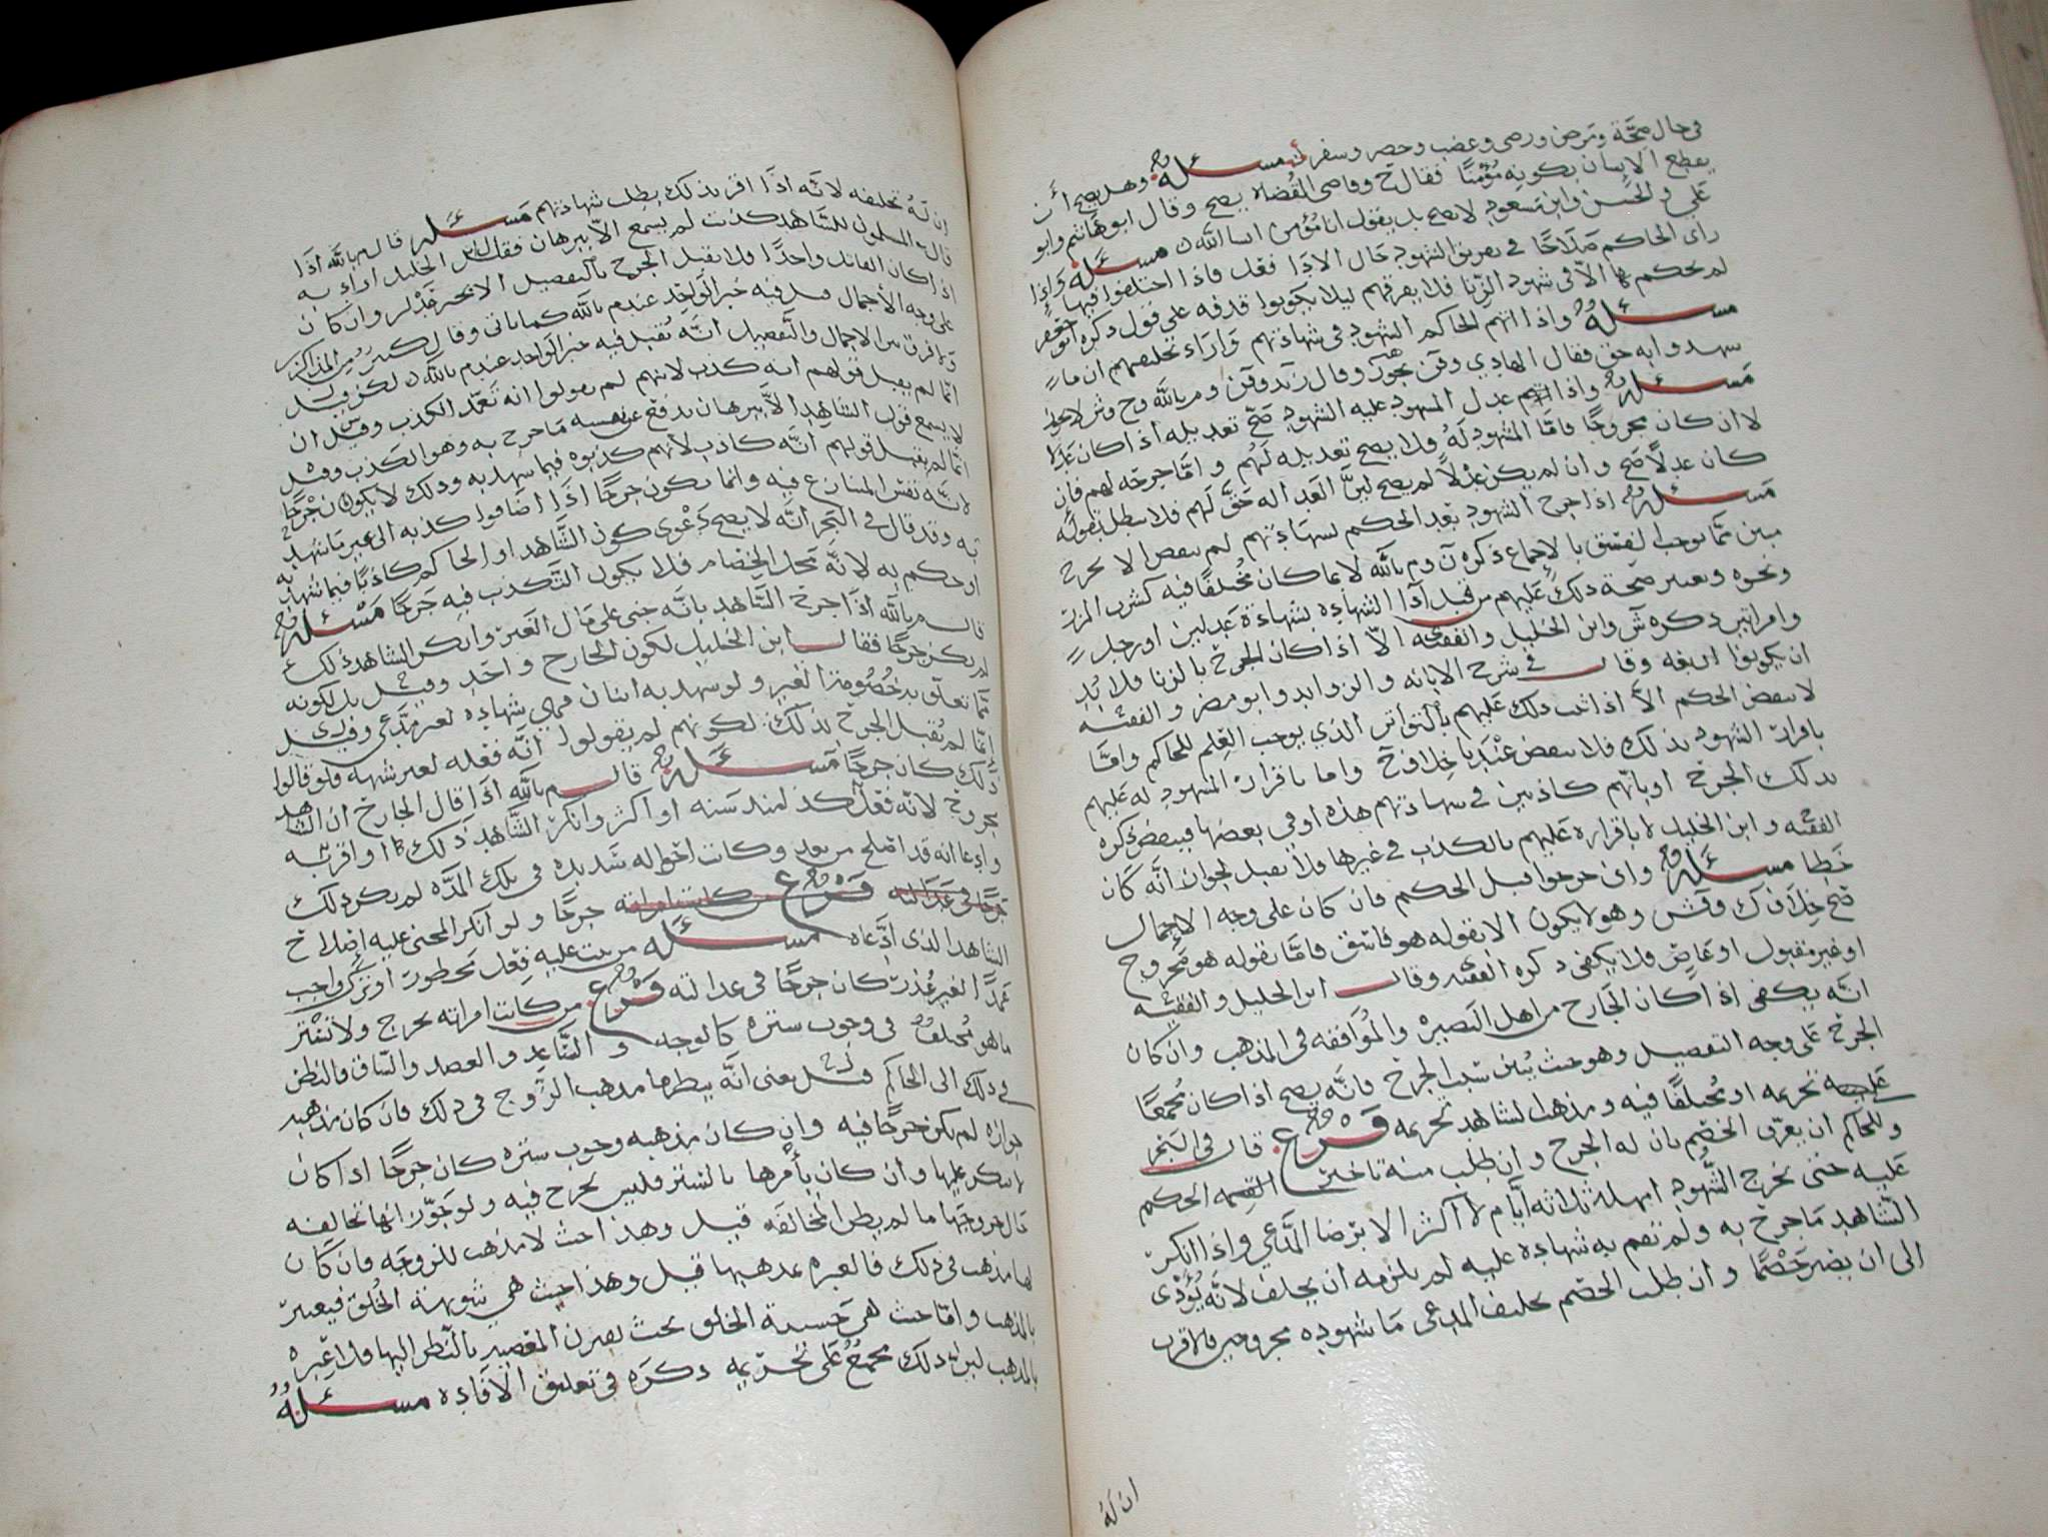 في حال صحة ومرض ورضى وغضب وحضر وسفر مسئلة وهل يصح أن
يقطع الإنسان بكونه مؤمنا فقال وقاضي القضاه يصح وقال ابو هاشم وابو
علي والحسن وابن مسعود لا يصح بل يقول انا مؤمن ان شا الله مسئلة واذا
راى الحاكم صلاحا في تفريق الشهود حال الادا فعل فاذا اختلفوا فيها
لم يحكم بها الا في شهود الزنا فلا يفرقهم ليلا يكونوا قذفه على قول ذكره
مسئلة واذا اتهم الحاكم الشهود في شهادتهم واراد تحليفهم ان ما
شهدوا به حق فقال الهادي يجوز وقال زيد و م بالله و ح و ش لا يجوز
مسئلة واذا عدل المشهود عليه الشهود صح تعديله اذا كان عدلا
لا ان كان مجروحا فاما المشهود له فلا يصح تعديله لهم واما جرحه لهم فإن
كان عدلا صح وان لم يكن عدلا لم يصح لأن العداله حق لهم فلا تبطل بقوله
مسئلة اذا جرح الشهود بعد الحكم بشهادتهم لم ينقض الا بجرح
مبين مما يوجب الفسق بالإجماع ذكره م بالله لا بما كان مختلفا فيه كشرب المزر
ونحوه ويعتبر صحة ذلك عليهم من قبل أدا الشهاده بشهادة عدلين او رجل
وامراتين ذكره ش وابن الخليل والفقيه الا اذا كان الجرح بالزنا فلا بد
ان يكونوا اربعه وقال في شرح الابانه والزوايد وابو مضر والفقيه
لا ينقض الحكم الا اذا ثبت ذلك عليهم بالتواتر الذي يوجب العلم للحاكم واما
باقرار الشهود بذلك فلا ينقض عندنا خلاف ح واما باقرار المشهود له عليهم
بذلك الجرح او بأنهم كاذبين في شهادتهم هذه او في بعضها فينقض ذكره
الفقيه وابن الخليل لا باقراره عليهم بالكذب في غيرها فلا يقبل لجواز انه كان
خطا مسئلة وان جرحوا قبل الحكم فان كان على وجه الاجمال
صح خلاف ك و ش وهو لا يكون الا بقوله هو فاسق فاما بقوله هو مجروح
او غير مقبول او عاص فلا يكفي ذكره الفقيه وقال ابن الخليل والفقيه
انه يكفي اذا كان الجارح من اهل البصيره والموافقه في المذهب وان كان
الجرح على وجه التفصيل وهو حيث يبين سبب الجرح فانه يصح اذا كان مجمعا
عليه تحريمه او مختلفا فيه ومذهب الشاهد تحريمه فرع قال في البحر
وللحاكم ان يعرف الخصم بان له الجرح وان طلب منه تاخير الحكم
عليه حتى يجرح الشهود امهله ثلاثه أيام لا اكثر الا برضا المدعي واذا انكر
الشاهد ما جرح به ولم تقم به شهاده عليه لم يلزمه ان يحلف لانه يؤدي
الى ان يصير خصما وان طلب الخصم تحليف المدعي ما شهوده مجروحين فالاقرب
ان له
ان له تحليفه لانه اذا اقر بذلك بطلت شهادتهم مسئلة قال م بالله اذا
قال المسلمون للشاهد كذبت لم يسمع الا ببرهان فقال ابن الخليل اراد به
اذا كان القائل واحدا فلا يقبل الجرح بالتفصيل الا بخبر عدلين وان كان
على وجه الأجمال قبل فيه خبر الواحد عند م بالله كما ياتي وقال كثير من المذاكرين
ولا فرق بين الاجمال والتفصيل انه يقبل فيه خبر الواحد عند م بالله لكن قيل
انما لم يقبل قولهم انه كذب لانهم لم يقولوا انه تعمد الكذب وقيل ان
لا يسمع قول الشاهد الا ببرهان يدفع عن نفسه ما جرح به وهو الكذب وقيل
انما لم يقبل قولهم انه كاذب لأنهم كذبوه فيما شهد به وذلك لا يكون جرحا
لانه نفس المتنازع فيه وانما يكون جرحا اذا اضافوا كذبه الى غير ما شهد
به وقد قال في البحر انه لا يصح دعوى كون الشاهد او الحاكم كاذبا فيما شهد به
او حكم به لانه محل الخصام فلا يكون التكذيب فيه جرحا مسئلة
قال م بالله اذا جرح الشاهد بانه جنى على مال الغير وانكر الشاهد ذلك
لم يكن جرحا فقال ابن الخليل لكون الجارح واحد وقيل بل لكونه
مما تعلق به خصومة الغير ولو شهد به اثنان فهي شهاده لغير مدعي وقيل
انما لم يقبل الجرح بذلك لكونهم لم يقولوا انه فعله لغير شبهه فلو قالوا
ذلك كان جرحا مسئلة قال م بالله اذا قال الجارح ان الشاهد
مجروح لانه فعل كذا منذ سنه او اكثر وانكر الشاهد ذلك او اقر به
وادعا انه قد اصلح من بعد وكانت احواله شديده في تلك المده لم يكن ذلك
جرحا في عدالته فرع من كانت امراته جرحا ولو أنكر المجني عليه إصلاح
الشاهد الذي ادعاه مسئلة من ثبت عليه فعل محظور او ترك واجب
عمدا لغير عذر كان جرحا في عدالته فرع من كانت امراته تخرج ولا تستر
ما هو مختلف في وجوب ستره كالوجه والساعد والعضد والساق فالنظر
في ذلك الى الحاكم قيل يعني انه ينظر ما مذهب الزوج في ذلك فان كان مذهبه
جوازه لم يكن جرحا فيه وان كان مذهبه وجوب ستره كان جرحا اذا كان
لا ينكر عليها وان كان يأمرها بالستر فليس بجرح فيه ولو جوز انها تخالفه
حال خروجها ما لم يظن المخالفه قيل وهذا حيث لا مذهب للزوجه فان كان
لها مذهب في ذلك فالعبره بمذهبها قيل وهذا حيث هي شوهة الخلق فيعتبر
بالمذهب واما حيث هي حسنة الخلق بحيث المبصر بالنظر اليها فلا عبره
بالمذهب لأن ذلك مجمع على تحريمه ذكره في تعليق الافاده مسئلة